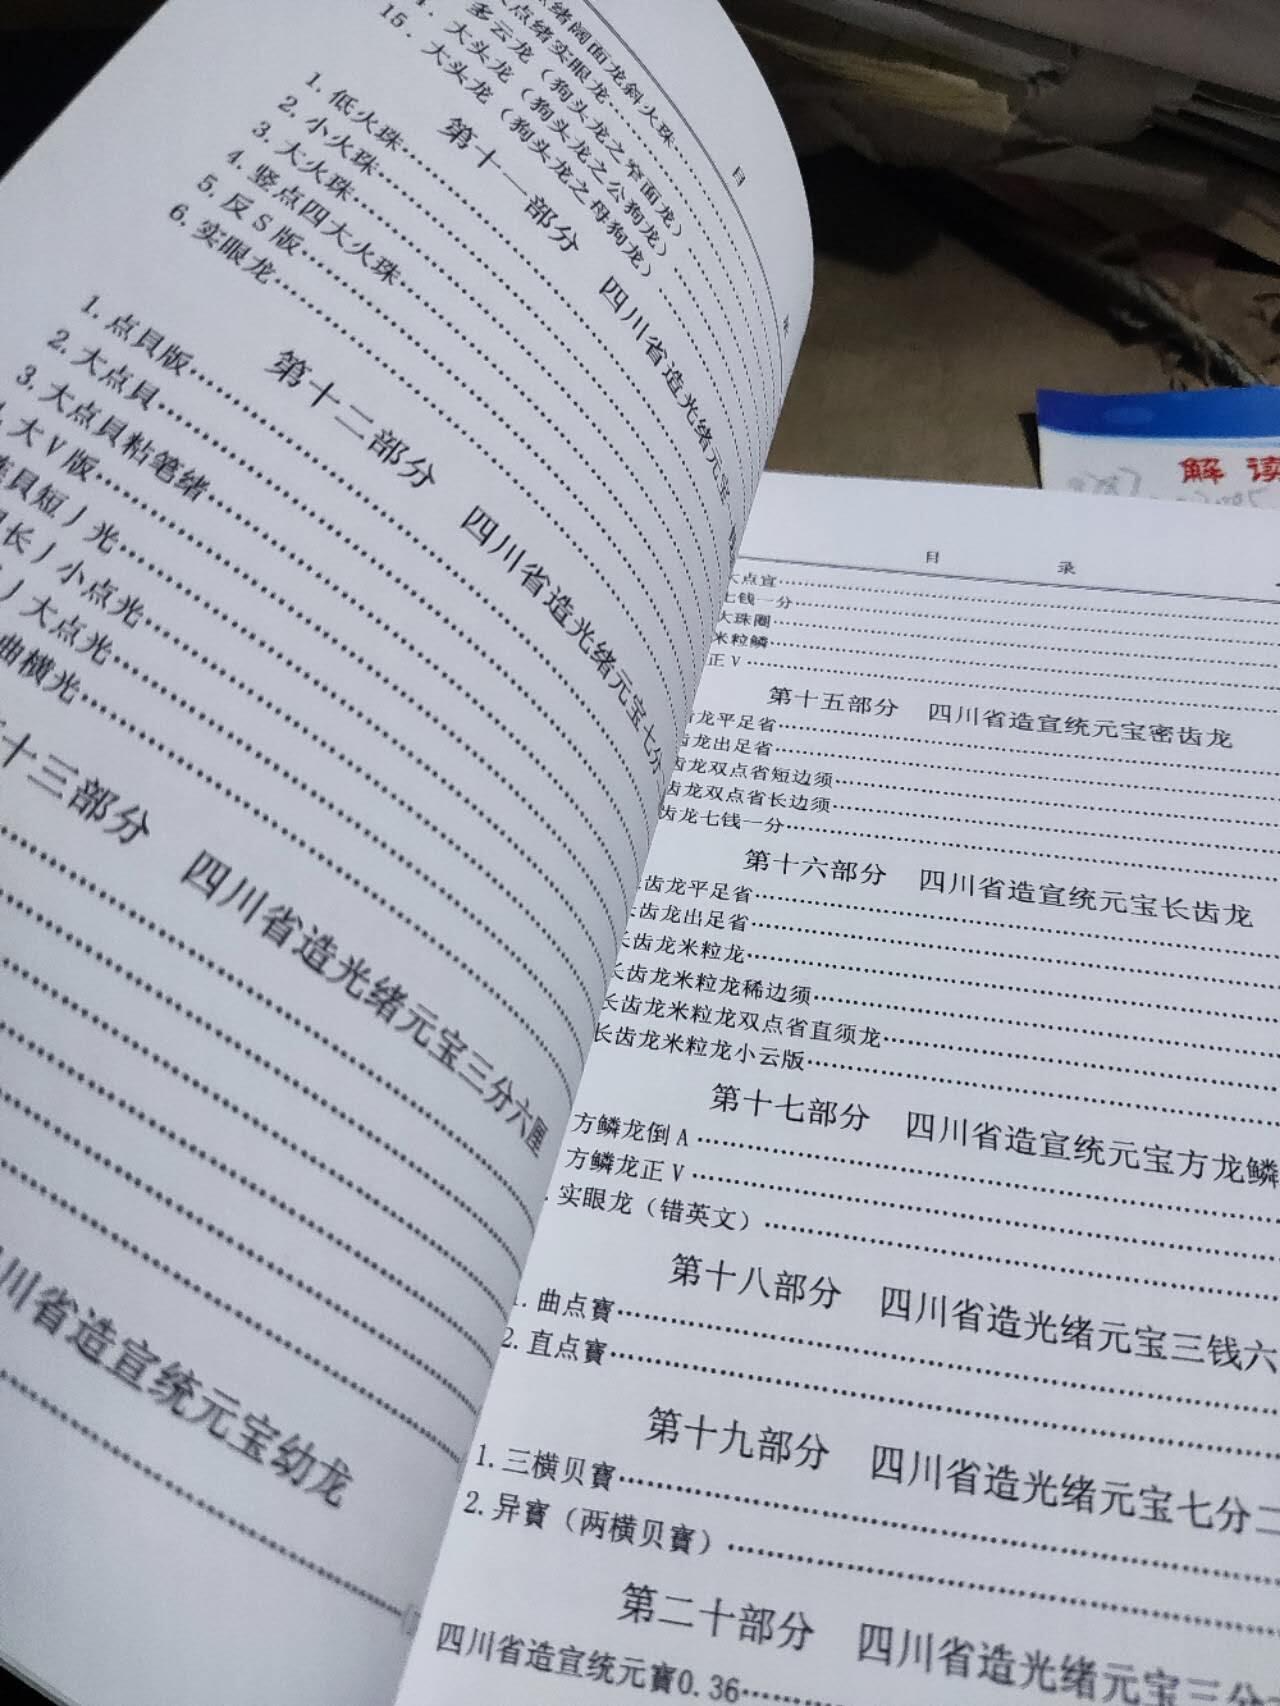 绪阔面龙斜火珠
点绪实眼龙
多云龙（狗头龙之窄面龙）
大头龙（狗头龙之公狗龙）
15. 大头龙（狗头龙之母狗龙）
目
第十一部分 四川省造光绪元宝
1. 低火珠
2. 小火珠
3. 大火珠
4. 竖点四大火珠
5. 反S版
6. 实眼龙
第十二部分 四川省造光绪元宝七分
1. 点貝版
2. 大点貝
3. 大点貝粘笔绪
大V版
貝短丿光
长丿小点光
丿大点光
曲横光
十三部分 四川省造光绪元宝三分六厘
川省造宣统元宝幼龙
解读
目 录
大点宣
七钱一分
大珠圈
米粒鳞
正V
第十五部分 四川省造宣统元宝密齿龙
齿龙平足省
齿龙出足省
齿龙双点省短边须
齿龙双点省长边须
齿龙七钱一分
第十六部分 四川省造宣统元宝长齿龙
齿龙平足省
长齿龙出足省
长齿龙米粒龙
长齿龙米粒龙稀边须
长齿龙米粒龙双点省直须龙
长齿龙米粒龙小云版
第十七部分 四川省造宣统元宝方龙鳞
方鳞龙倒A
方鳞龙正V
实眼龙（错英文）
第十八部分 四川省造光绪元宝三钱六
1. 曲点寶
2. 直点寶
第十九部分 四川省造光绪元宝七分二
1. 三横贝寶
2. 异寶（两横贝寶）
第二十部分 四川省造光绪元宝三分
四川省造宣统元寶0.36